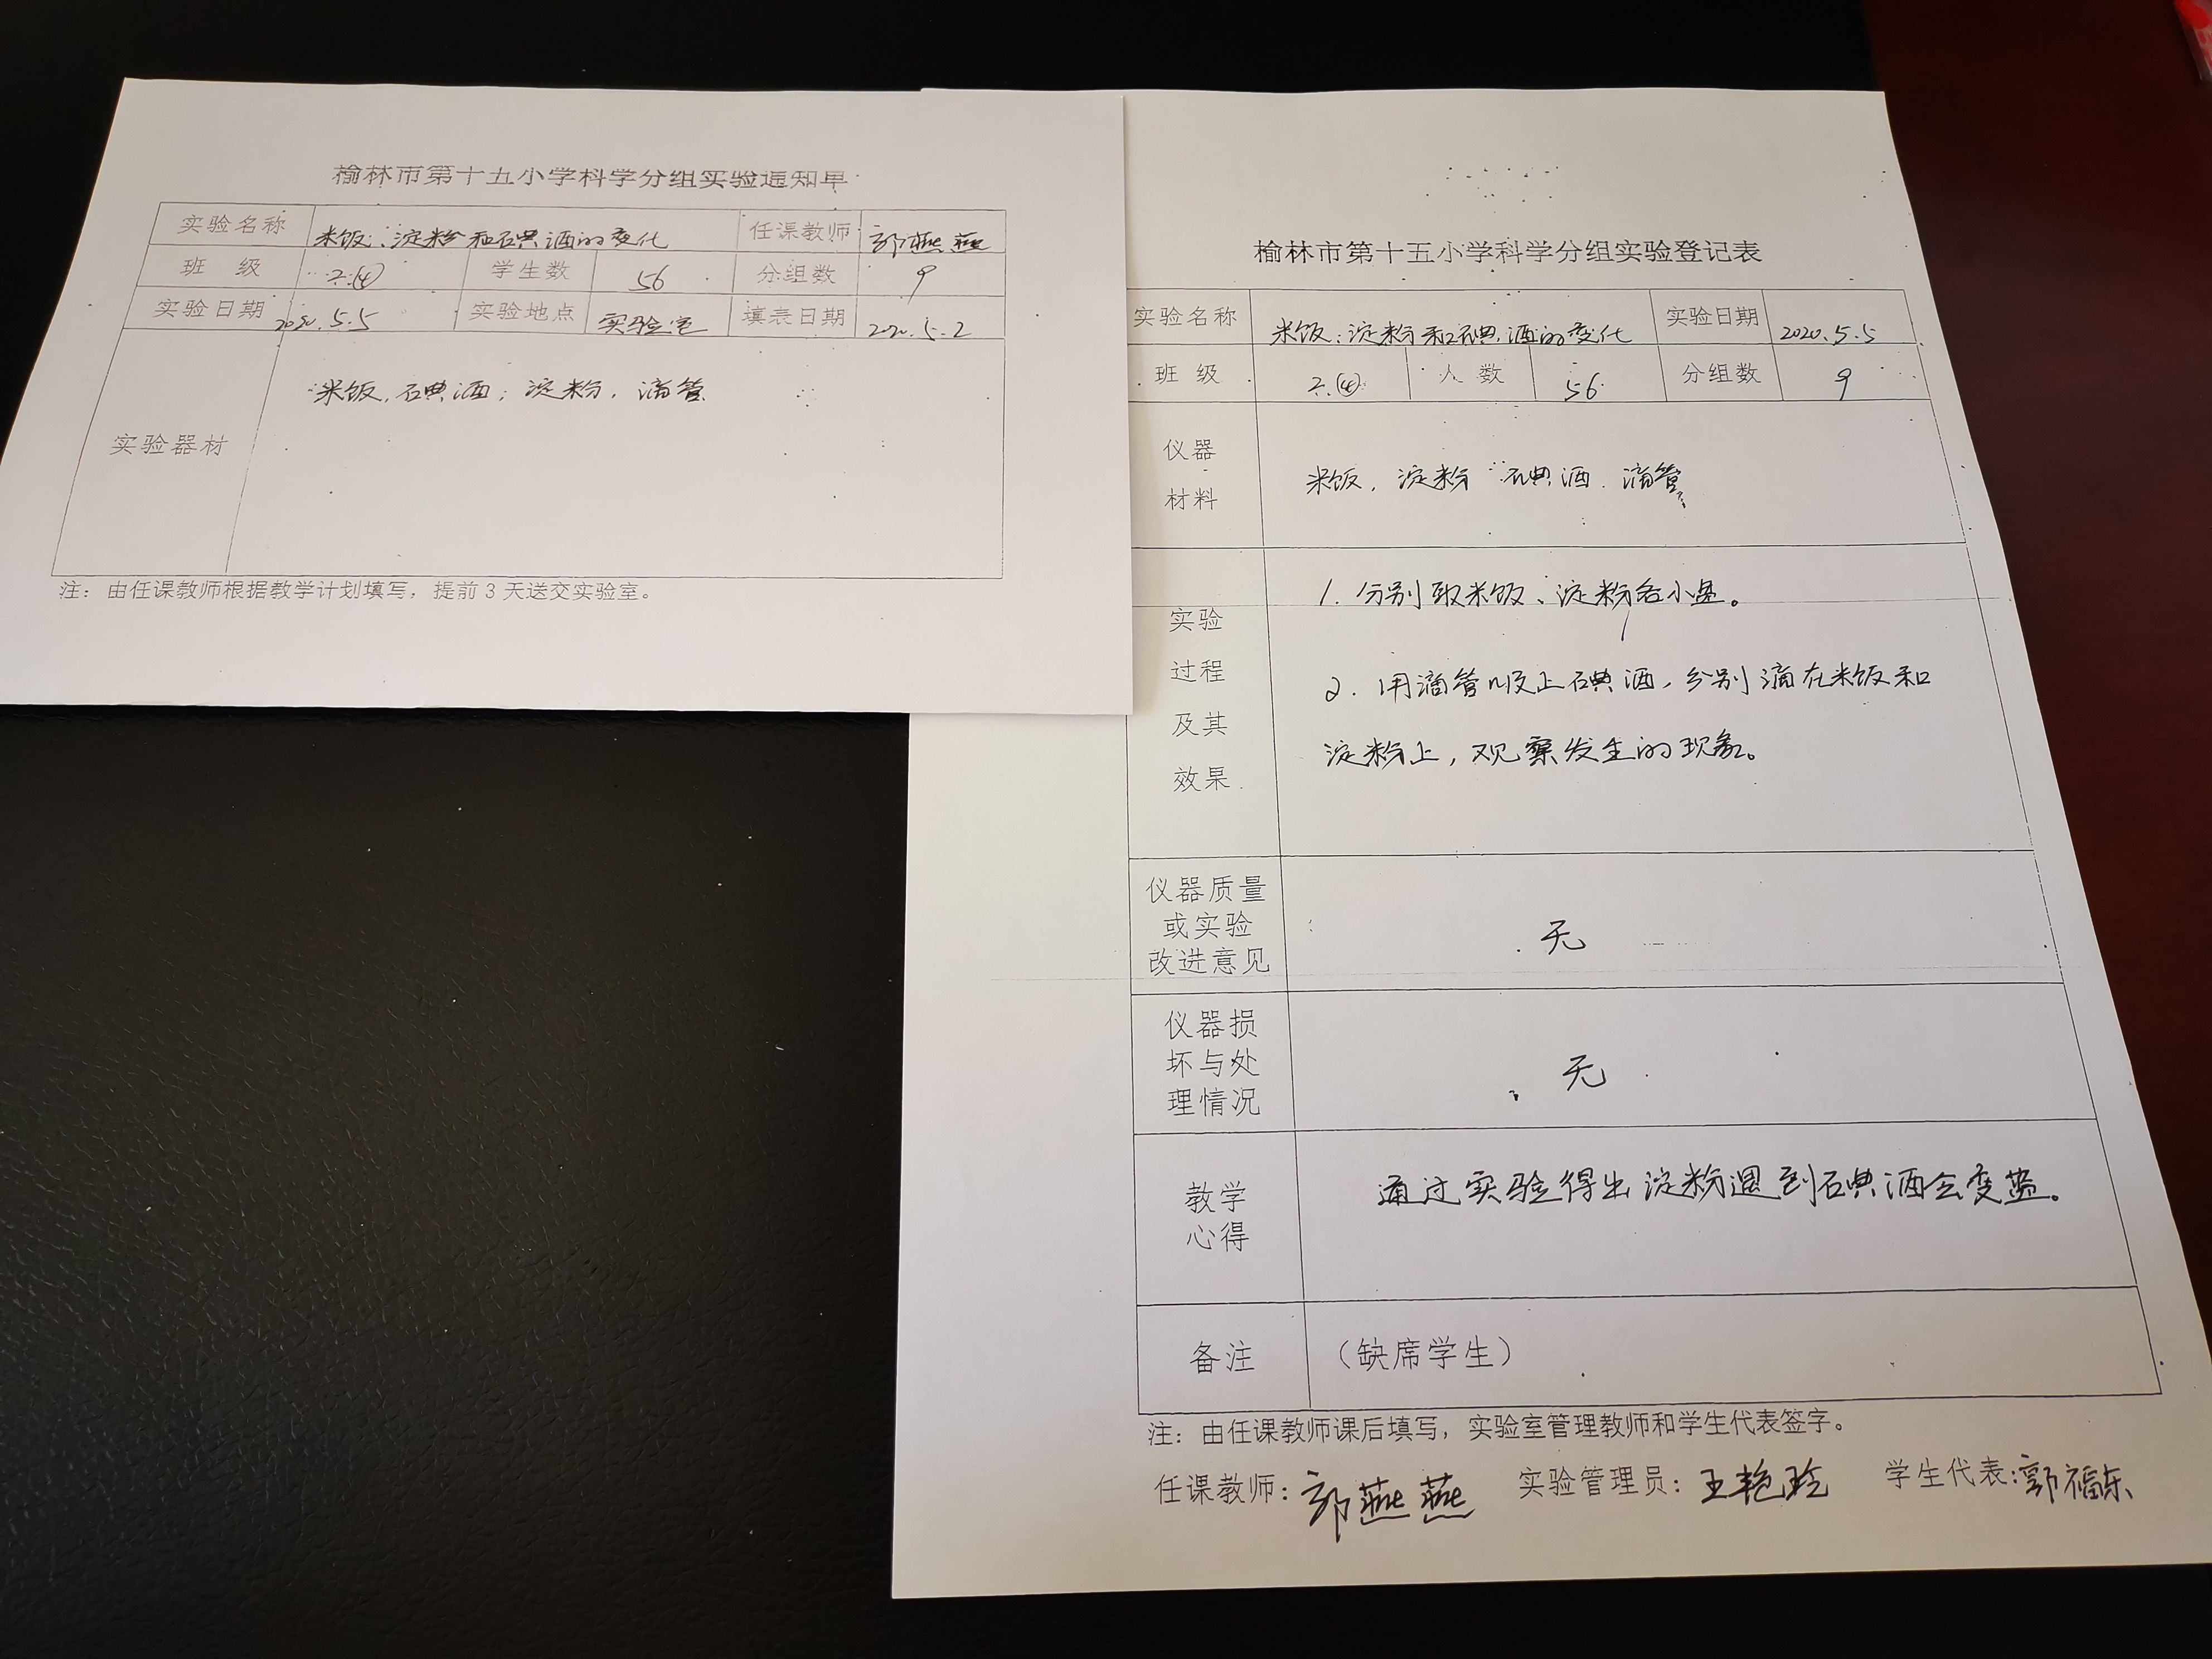 榆林市第十五小学科学分组实验通知单
实验名称 米饭、淀粉和碘酒的变化 任课教师 郭燕燕
班 级 2.(4) 学生数 56 分组数 9
实验日期 2020.5.5 实验地点 实验室 填表日期 2020.5.2
实验器材 米饭,碘酒,淀粉,滴管
注：由任课教师根据教学计划填写，提前3天送交实验室。
榆林市第十五小学科学分组实验登记表
实验名称 米饭、淀粉和碘酒的变化 实验日期 2020.5.5
班 级 2.(4) 人 数 56 分组数 9
仪器
材料
米饭,淀粉 碘酒.滴管
实验
过程
及其
效果
1.分别取米饭、淀粉各小量。
2.用滴管吸上碘酒,分别滴在米饭和
淀粉上,观察发生的现象。
仪器质量
或实验
改进意见
无
仪器损
坏与处
理情况
无
教学
心得
通过实验得出淀粉遇到碘酒会变蓝。
备注 （缺席学生）
注：由任课教师课后填写，实验室管理教师和学生代表签字。
任课教师：郭燕燕 实验管理员：王艳玲 学生代表：郭福东